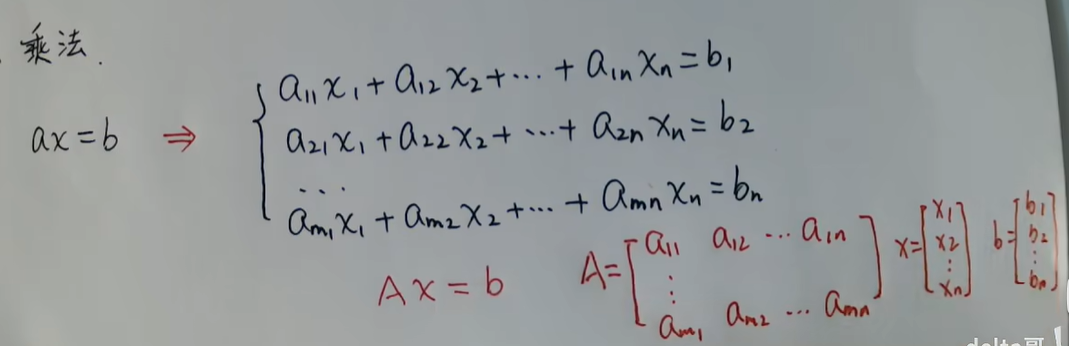 乘法.
ax=b ⇒
a₁₁x₁+a₁₂x₂+⋯+a₁ₙxₙ=b₁
a₂₁x₁+a₂₂x₂+⋯+a₂ₙxₙ=b₂
⋯
aₘ₁x₁+aₘ₂x₂+⋯+aₘₙxₙ=bₙ
Ax=b A=[a₁₁ a₁₂ ⋯ a₁ₙ ⋮ aₘ₁ aₘ₂ ⋯ aₘₙ] x=[x₁ x₂ ⋮ xₙ] b=[b₁ b₂ ⋮ bₙ]